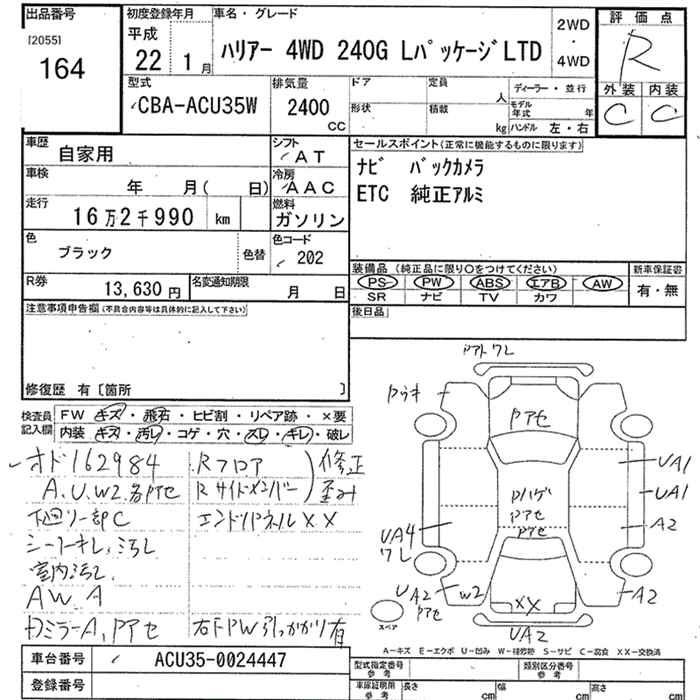 出品番号
[2055]
164
初度登録年月
平成
22 1月
車名・グレード
ﾊﾘｱｰ 4WD 240G LﾊﾟｯｹｰｼﾞLTD
2WD
・
4WD
評価点
R
外装 内装
C C
型式
CBA-ACU35W
排気量
2400
CC
ドア
形状
定員
人
積載
kg
ディーラー・並行
モデル年式 年
ハンドル 左・右
車歴
自家用
シフト
AT
車検
年 月( 日)
冷房
AAC
走行
16万2千990 km
燃料
ガソリン
色
ブラック
色替
色コード
202
R券
13,630 円
名変通知期限
月 日
セールスポイント(正常に機能するものに限ります)
ﾅﾋﾞ ﾊﾞｯｸｶﾒﾗ
ETC 純正ｱﾙﾐ
装備品 (純正品に限り〇をつけてください)
PS PW ABS エアB AW
SR ナビ TV カワ
新車保証書
有・無
後日品
注意事項申告欄(不具合内容等は具体的に記入して下さい)
修復歴 有 [箇所 ]
検査員記入欄
FW キズ・飛石・ヒビ割・リペア跡・×要
内装 キズ・汚レ・コゲ・穴・スレ・キレ・破レ
オド162984
A.U.W2.各Pアセ
下廻リ一部C
シートキレ、汚レ
室内汚レ
AW A
Dミラー A, Pアセ
Rフロア
Rサイドメンバー
修正
歪み
エンドパネルXX
右F PW引っかかり有
Pアトワレ
Pウキ
Pアセ
Pハゲ
Pアセ
Pアセ
UA1
UA1
A2
A2
UA4
ワレ
UA2
Pアセ
W2
XX
UA2
スペア
A-キズ E-エクボ U-凹み W-補修跡 S-サビ C-腐食 XX-交換済
車台番号
ACU35-0024447
登録番号
型式指定番号
参考
類別区分番号
参考
車庫証明用
参考
長さ cm
幅 cm
高さ cm